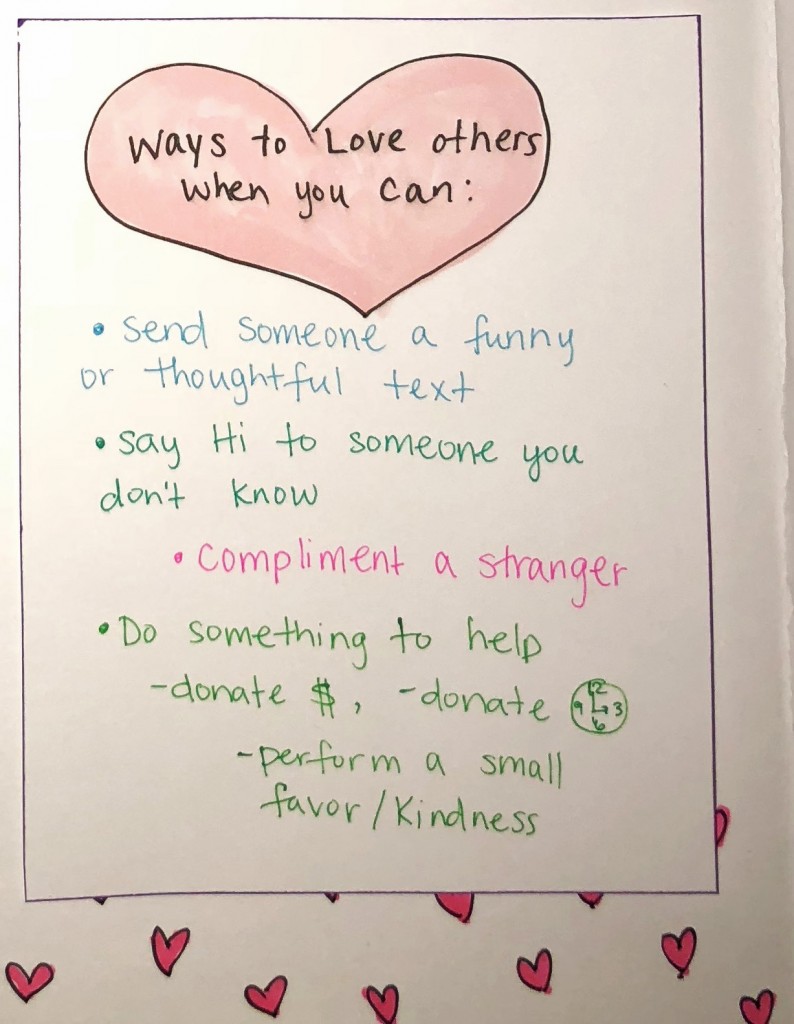 Ways to Love others
when you can:
• Send someone a funny
or thoughtful text
• Say Hi to someone you
don't know
• Compliment a stranger
• Do something to help
-donate $, -donate 12 9 3 6
-perform a small
favor/Kindness